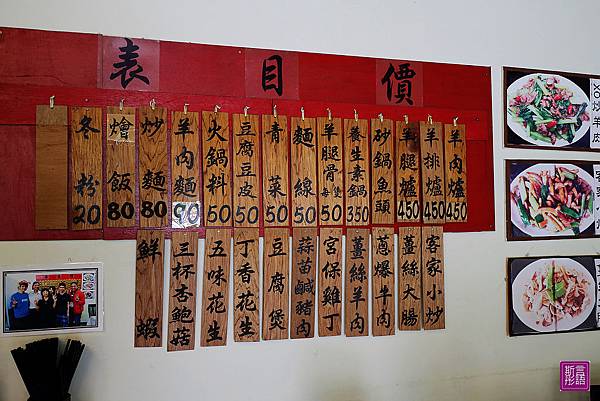 價目表
羊肉爐 450
羊排爐 450
羊腿爐 450
砂鍋魚頭
養生素鍋 350
羊腿骨每隻 50
麵線 50
青菜 50
豆腐豆皮 50
火鍋料 50
羊肉麵 90
炒麵 80
燴飯 80
冬粉 20
客家小炒
薑絲大腸
蔥爆牛肉
薑絲羊肉
宮保雞丁
蒜苗鹹豬肉
豆腐煲
丁香花生
五味花生
三杯杏鮑菇
鮮蝦
XO炒羊皮
言語
斯彤